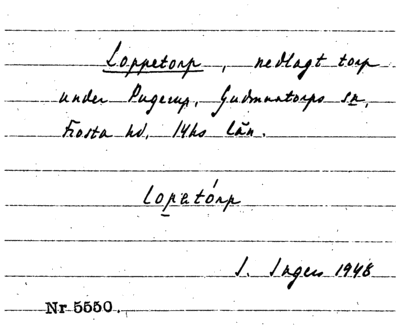 Loppetorp, nedlagt torp
under Pugerup, Gudmuntorps sn,
Frosta hd, Mhs län.
lopatórp
I. Ingers 1948
Nr 5550.